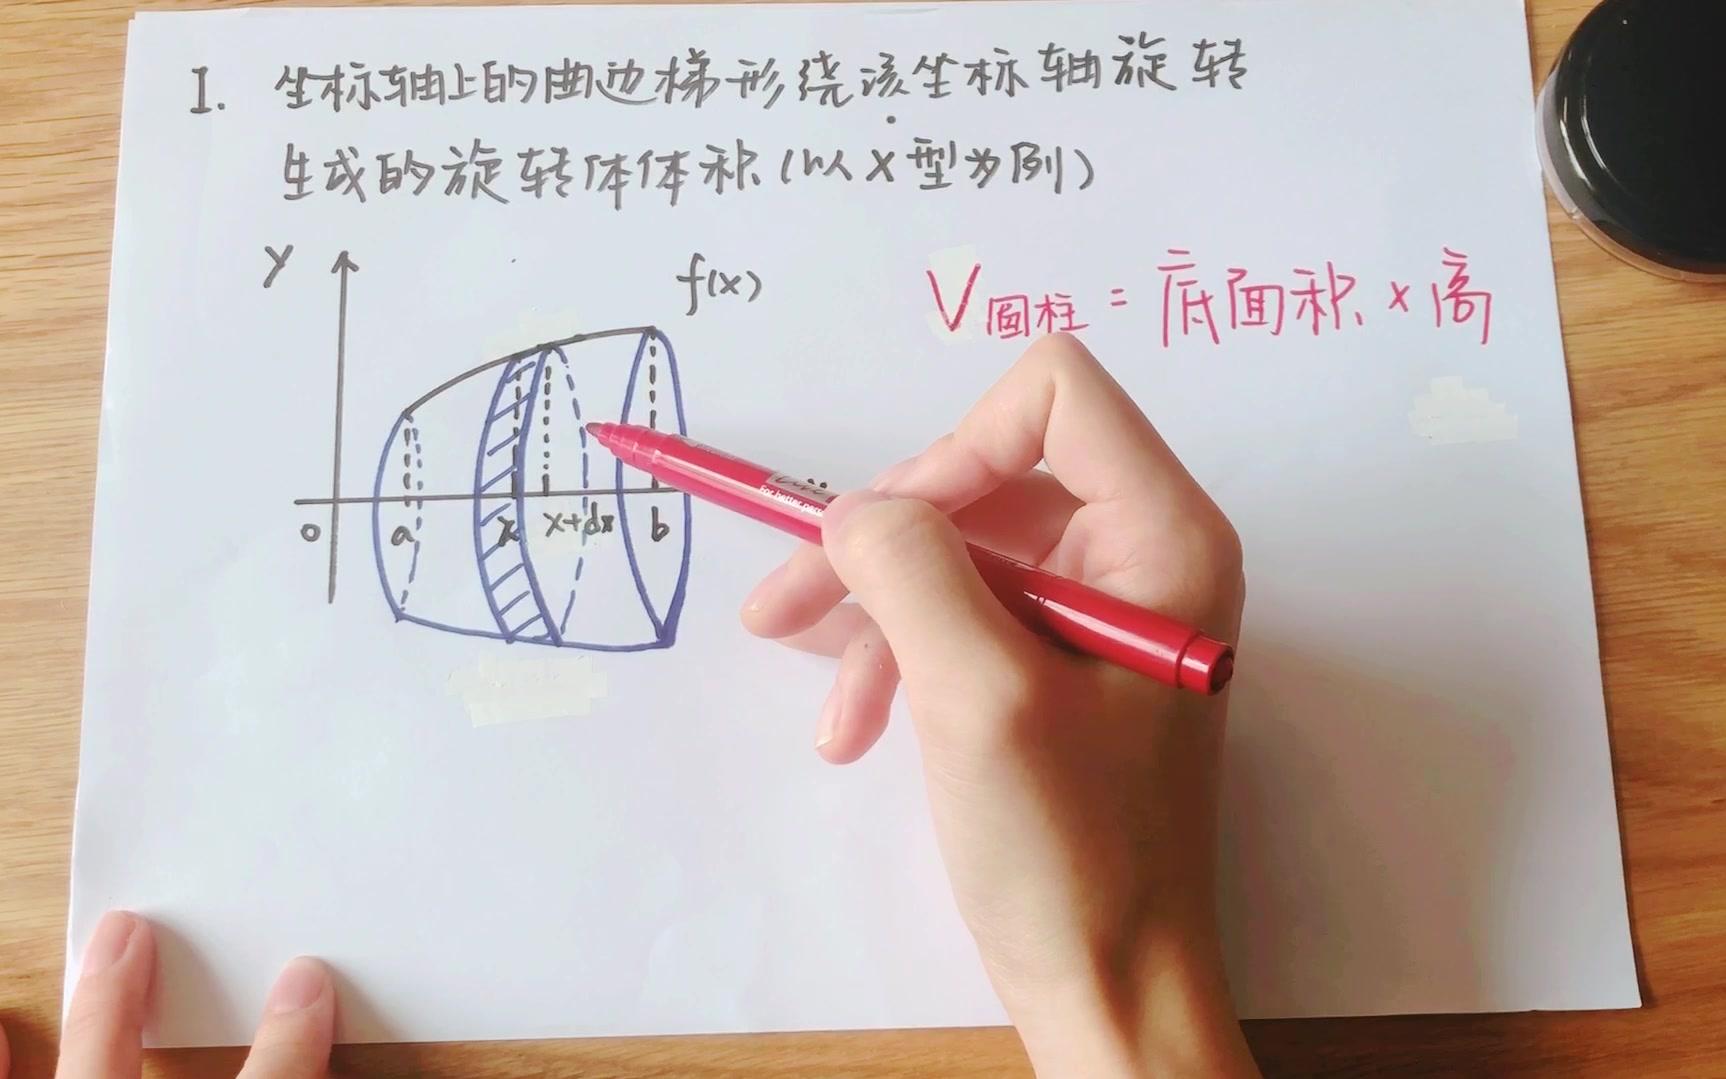 I. 坐标轴上的曲边梯形绕该坐标轴旋转
生成的旋转体体积(以X型为例)
y
f(x)
V圆柱 = 底面积 × 高
o a x x+dx b
For better pers